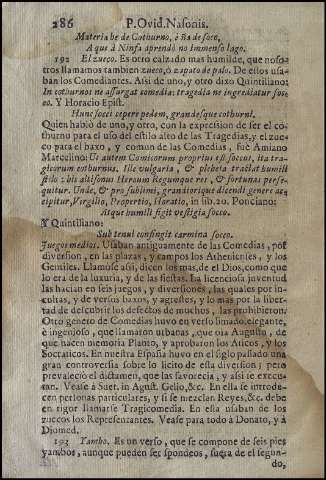 286 P. Ovid. Nasonis.
Materia be de Cothurno, è sta de soco,
A què à Ninfa aprendò no immenso lago.
192 El zueco. Es otro calzado mas humilde, que noso-
tros llamamos tambien zueco, ò zapato de palo. De ellos usa-
ban los Comediantes. Assi de uno, y otro dixo Quintiliano:
In cothurno ne assurgat comedia: tragedia ne ingrediatur soc-
co. Y Horacio Epist.
Hunc socci cepere pedem, grandesque cothurni.
Quien hablò de uno, y otro, con la expresion de ser el co-
thurno para el uso del estilo alto de las Tragedias, y el zue-
co para el baxo, y comun de las Comedias, fuè Amiano
Marcelino: Ut autem Comicorum proprius est soccus, ita tra-
gicorum cothurnus. Ille vulgaria, & plebeia tractat humili
stilo: hic altisonus Heroum Regumque res, & fortunas perse-
quitur. Unde, & pro sublimi, grandiorique dicendi genere ac-
cipitur, Virgilio, Propertio, Horatio, in lib. 20. Ponciano:
Atque humili figit vestigia socco.
Y Quintiliano:
Sub tenui confingit carmina socco.
Juegos medios. Usaban antiguamente de las Comedias, por
diversion, en las plazas, y campos los Athenienses, y los
Gentiles. Llamòse assi, dicen los mas, de el Dios, como que
lo era de la luxuria, y de las fiestas. La licenciosa juventud
las hacian en seis juegos, y diversiones, las quales por in-
cultas, y de versos baxos, y agrestes, y lo mas por la liber-
tad de descubrir los defectos de muchos, las prohibieron.
Otro genero de Comedias huvo en verso limado, elegante,
è ingenioso, que llamaron urbanas, que oìa Augusto, de
que hacen memoria Planto, y aprobaron los Aticos, y los
Socraticos. En nuestra España huvo en el siglo pasado una
gran controversia sobre lo licito de esta diversion; pero
prevaleciò el dictamen, que las favorecia, y assi se execu-
tan. Vease à Suet. in Agust. Gelio, &c. En ella se introdu-
cen personas particulares, y si se mezclan Reyes, &c. debe
en rigor llamarse Tragicomedia. En ella usaban de los
zuecos los Representantes. Vease para todo à Donato, y à
Diomed.
193 Yambo. Es un verso, que se compone de seis pies
yambos, aunque pueden ser spondeos, fuera de el segun-
do,